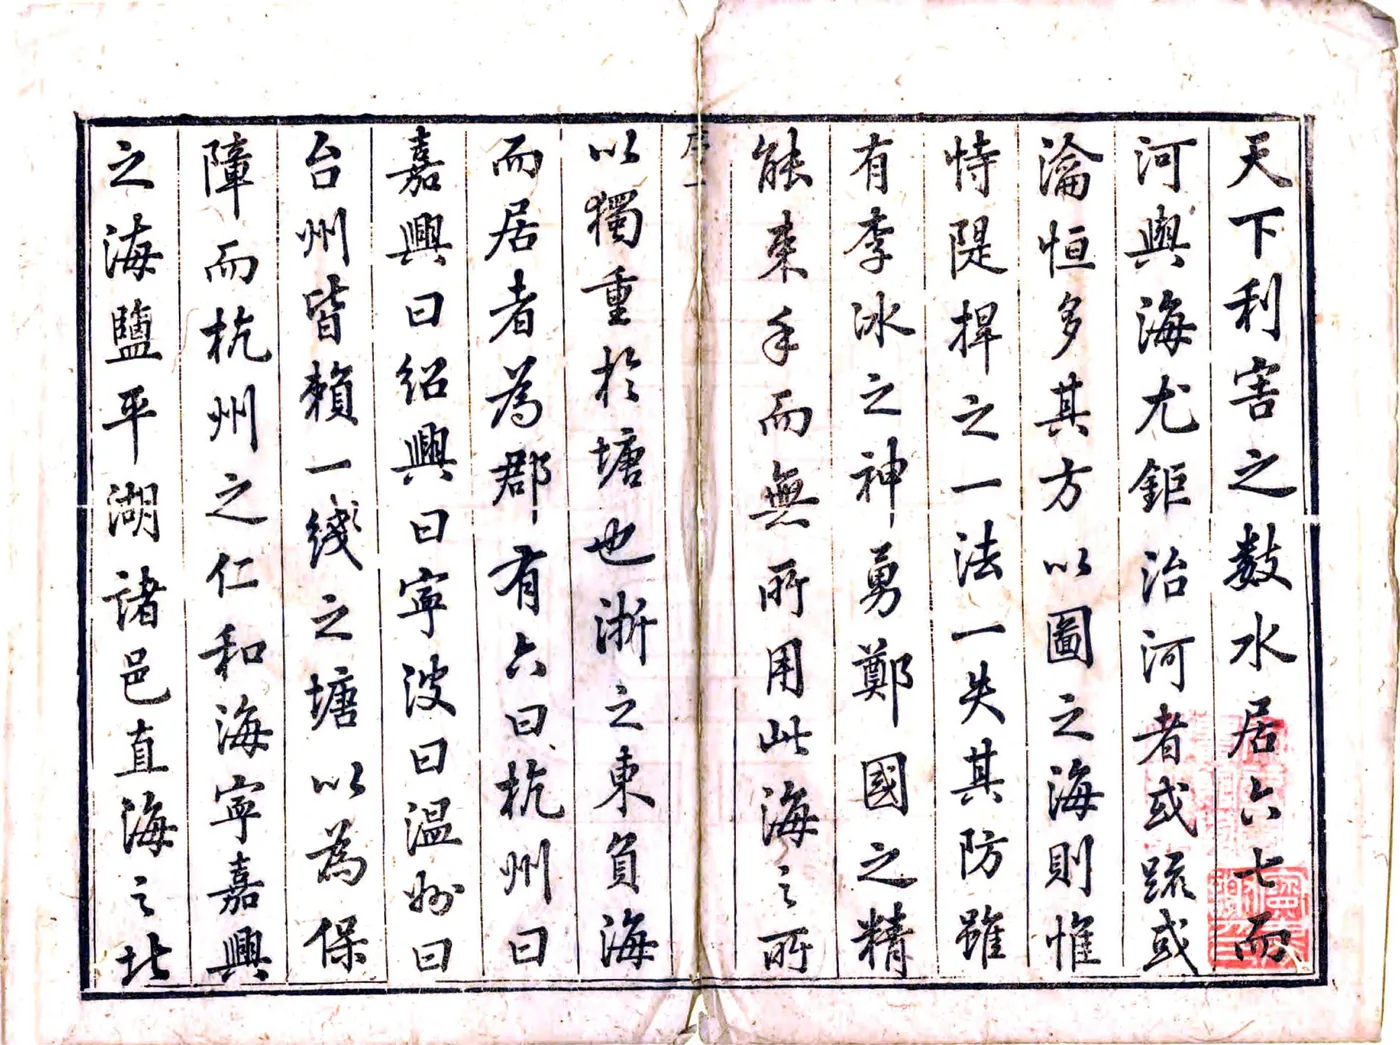 天下利害之數水居六七而
河與海尤鉅治河者或疏或
瀹恒多其方以圖之海則惟
恃隄捍之一法一失其防雖
有李冰之神勇鄭國之精
能束手而無所用此海之所
序一
以獨重於塘也浙之東負海
而居者為郡有六曰杭州曰
嘉興曰紹興曰寧波曰温州曰
台州皆賴一綫之塘以為保
障而杭州之仁和海寧嘉興
之海鹽平湖諸邑直海之北